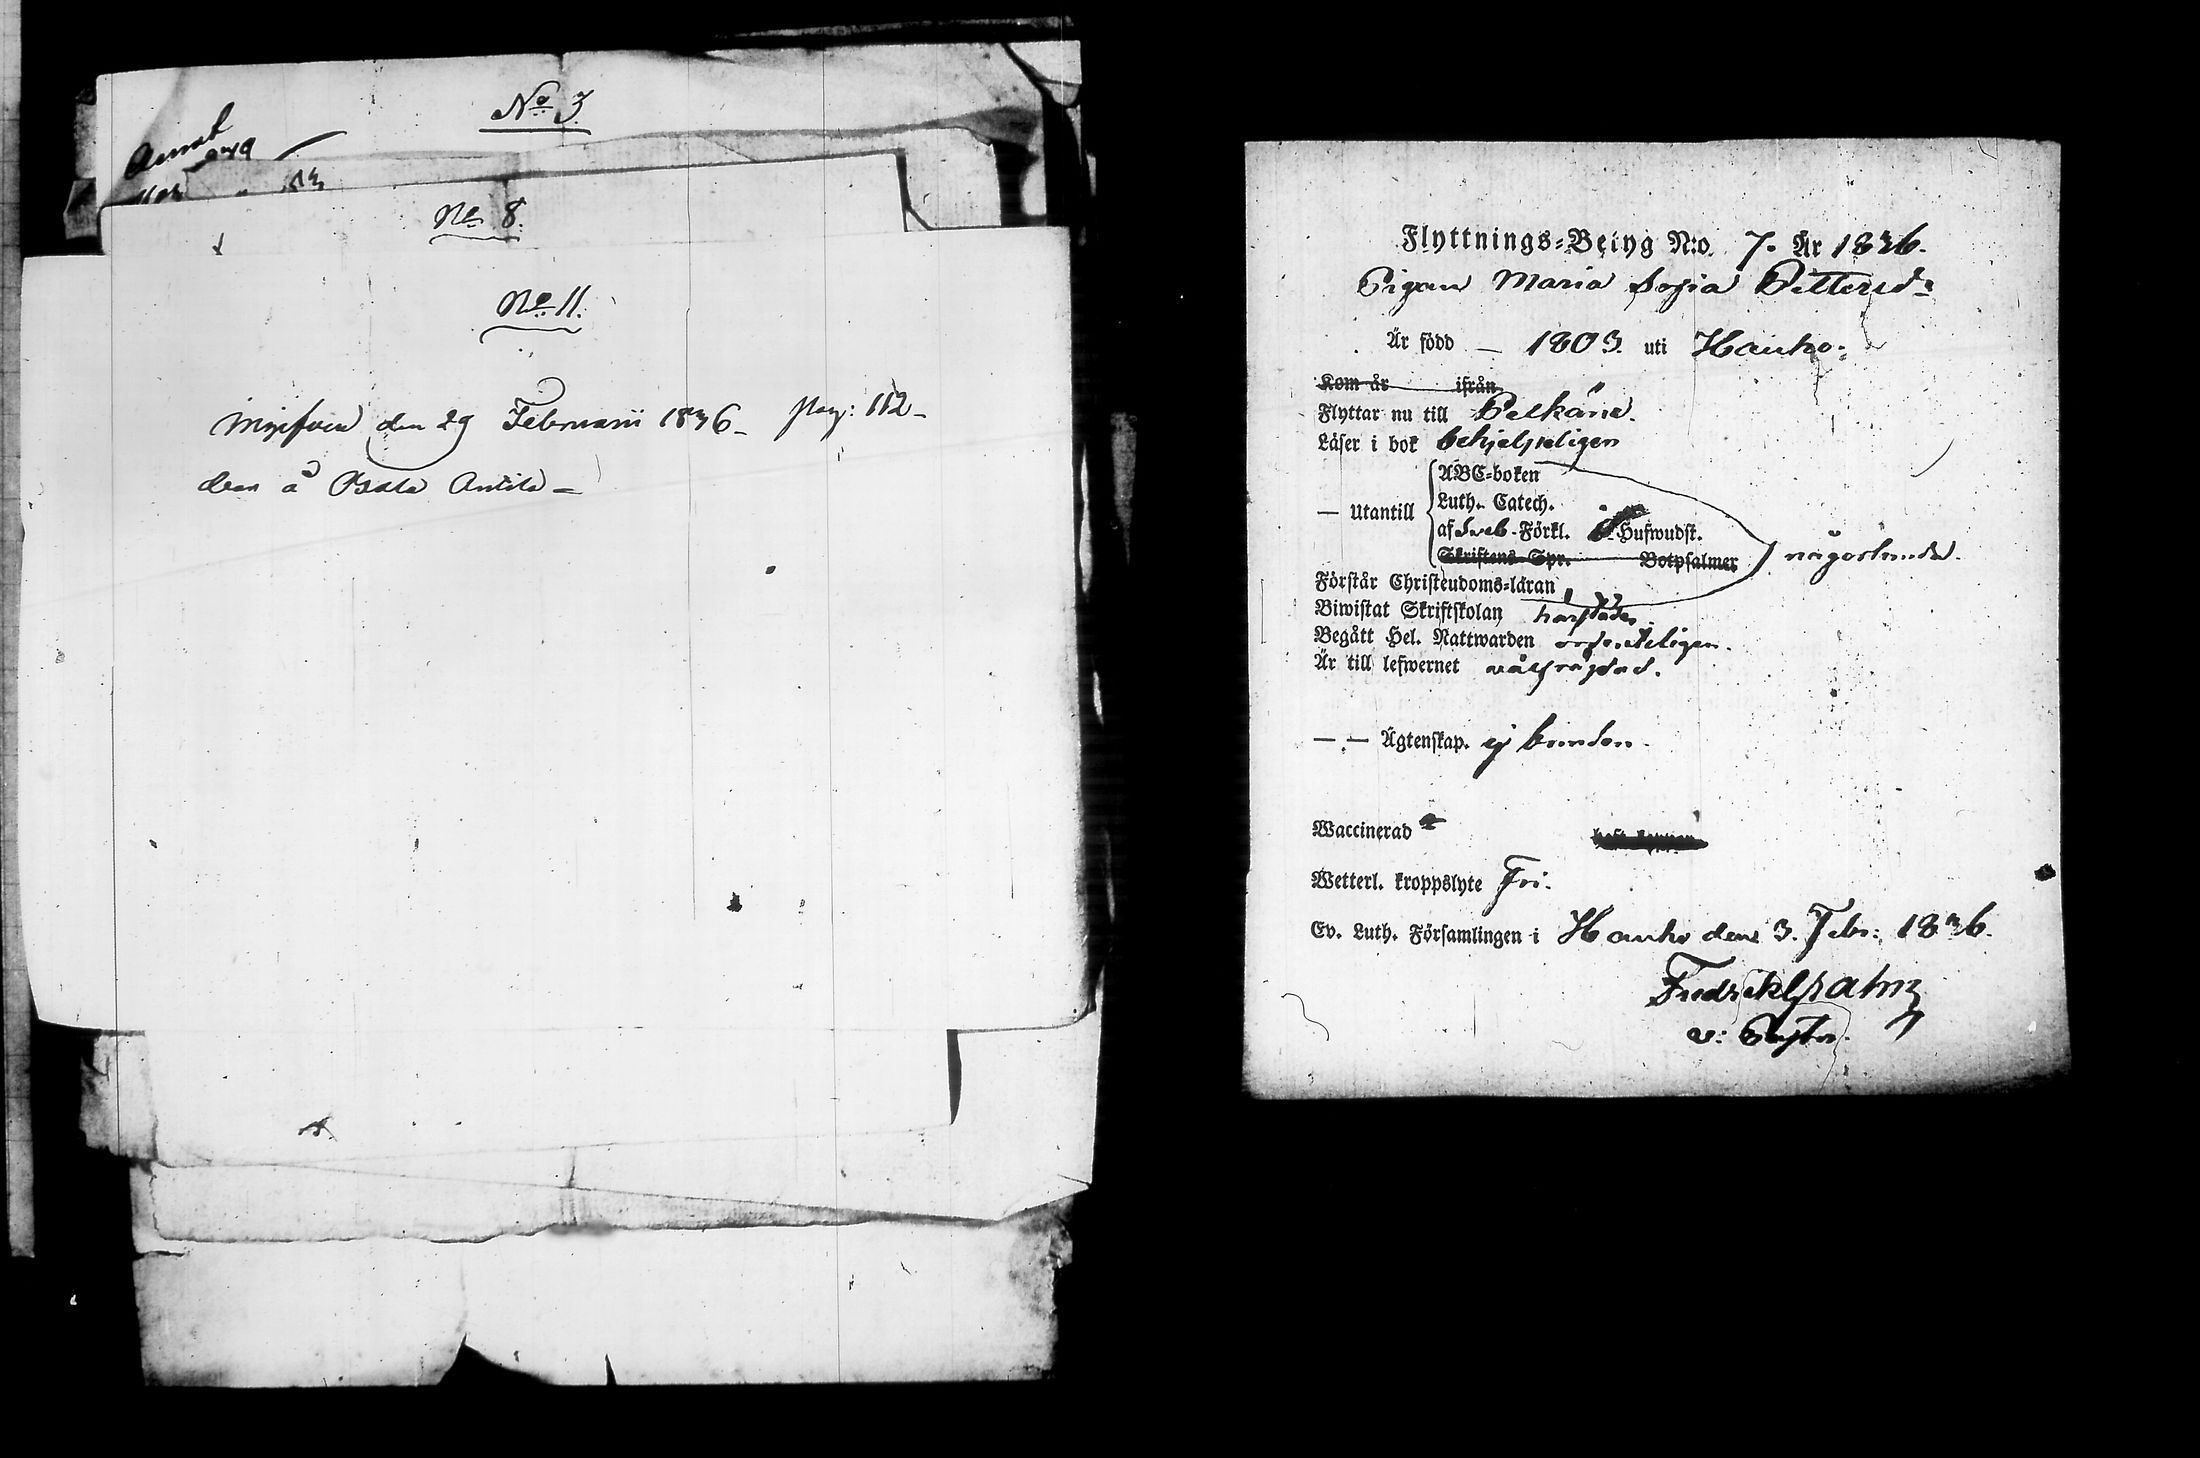 No 3
No 8.
No 11.
Ingifven den 29 Februarii 1836 pag: 112
den å
Flyttnings-Betyg N:o. 7. År 1836.
Pigan Maria Sofia Pettersdr
Är född — 1803. uti Hauho.
Kom år ifrån
Flyttar nu till Pelkäne.
Läser i bok behjelpeligen
— Utantill
ABC-boken
Luth. Catech.
af Sveb. Förkl. Hufwudst.
Skriftens Spr. Botpsalmer
någorlunda.
Förstår Christendoms-läran
Biwistat Skriftskolan härstädes
Begått Hel. Nattwarden ordenteligen.
Är till lefwernet välfrägdad.
— . — Ägtenskap. ej bunden.
Waccinerad
haft koppor
Wetterl. kroppslyte Fri.
Ev. Luth. Församlingen i Hauho den 3. Febr: 1836.
v: Pastor.